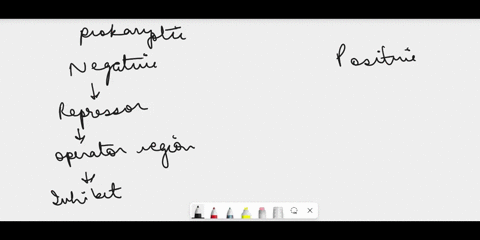 prokaryotic
Negative
↓
Repressor
↓
operator region
↓
Inhibit
Positive